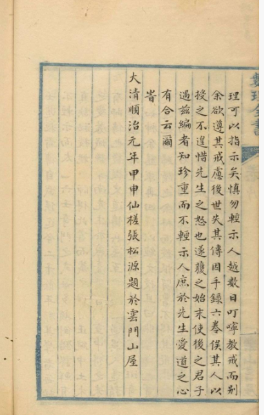 理可以指示矣慎勿輕示人越數日叮嚀教戒而別
余欲遵其戒慮後世失其傳因手錄六卷俟其人以
授之不遑惜先生之怒也遂覆之始末使後之君子
過茲編者知珍重而不輕示人庶於先生愛道之心
有合云爾
旹
大清順治元年甲申仙槎張松源題於雲門山屋